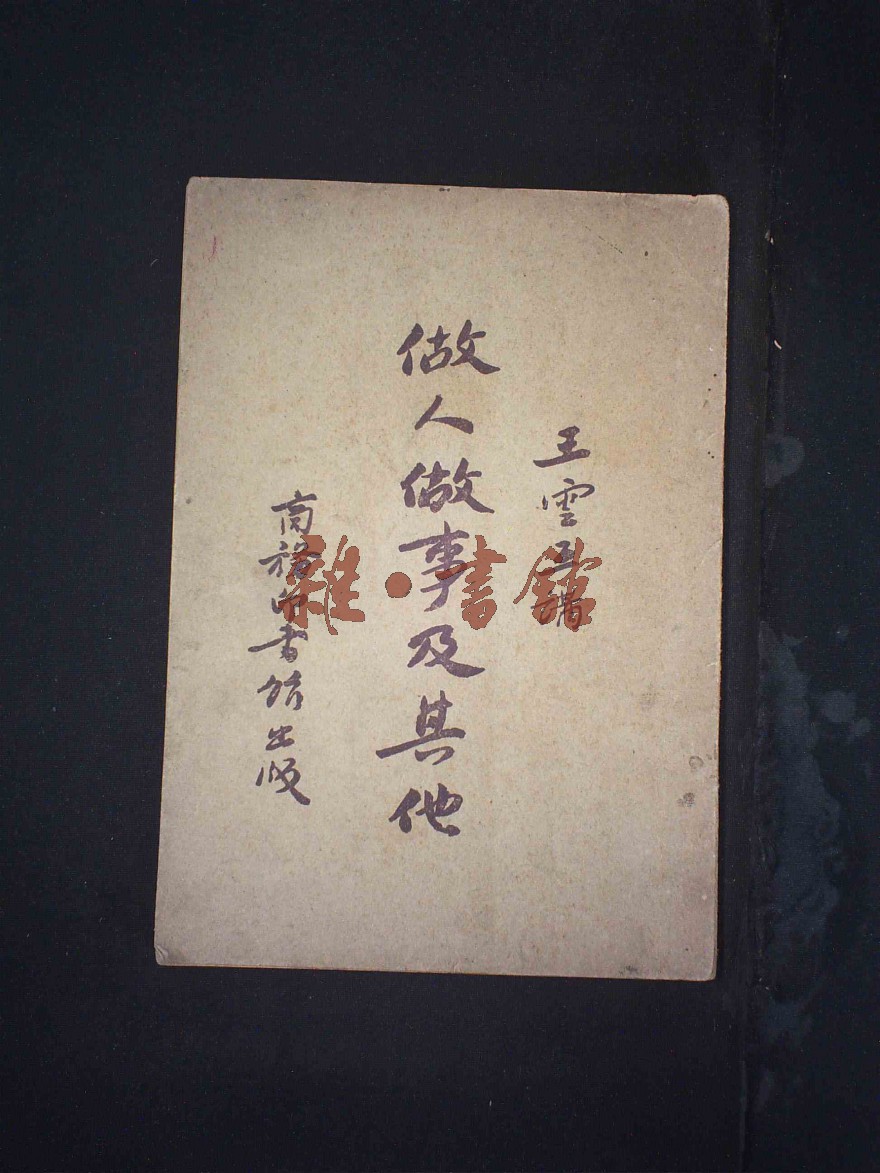 王雲五講
做人做事及其他
商務印書館出版
雜·書館